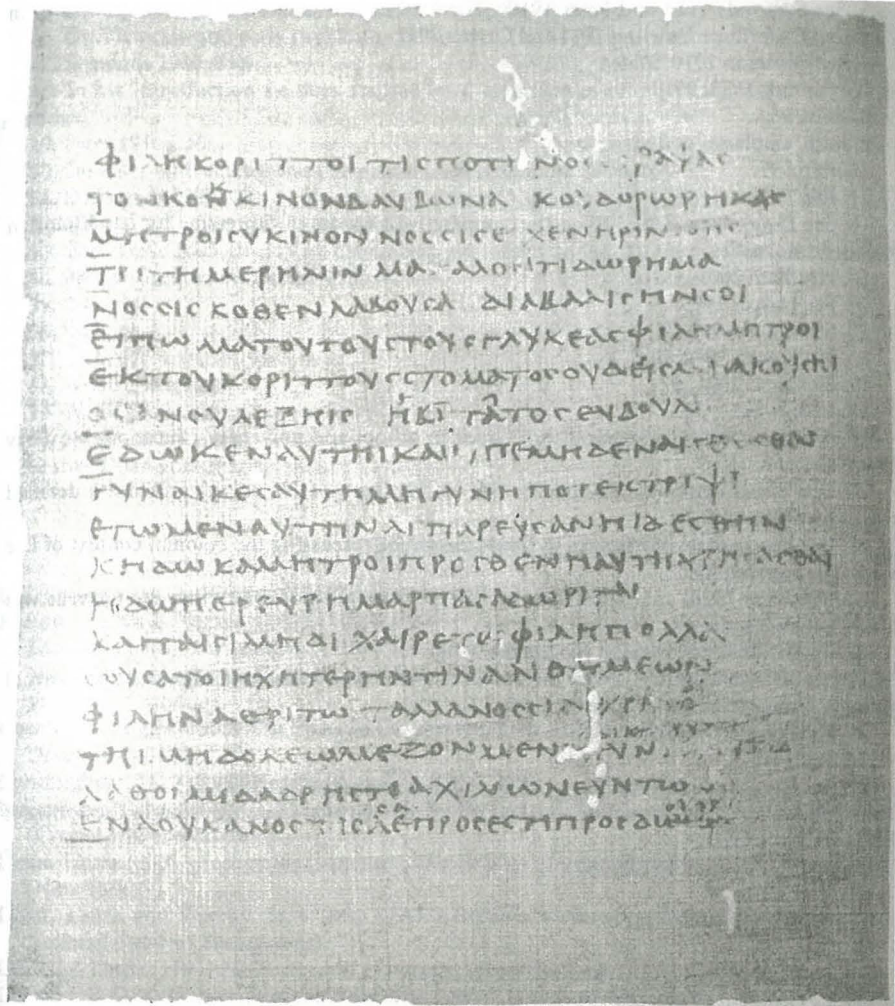 ΦΙΛΗΚΟΡΙΤΤΟΙΤΙϹΠΟΤ ΝΟ ΡΑΨΑϹ
ΤΟΝΚΟΚΚΙΝΟΝΒΑΥΒΩΝΑ ΚΟΥΔΟΡΩΡΗΚΑϹ
ΜΗΤΡΟΙΤΥΚΙΝΟΝ ΝΟϹϹΙϹΕΙΧΕΝΗΡΙΝΝΗϹ
ΤΡΙΤΗΜΕΡΗΝΙΝ ΜΑ ΚΑΛΟΝΤΙΔΩΡΗΜΑ
ΝΟϹϹΙϹΚΟΘΕΝΛΑΒΟΥϹΑ ΔΙΑΒΑΛΙϹΗΝϹΟΙ
ΕΙΠΩ ΜΑΤΟΥΤΟΥϹΤΟΥϹΓΛΥΚΕΑϹΦΙΛΗΜΗΤΡΟΙ
ΕΚΤΟΥΚΟΡΙΤΤΟΥϹϹΤΟΜΑΤΟϹΟΥΔΕΙϹΜΗΑΚΟΥϹΗΙ
ΟϹ ΑΝϹΥΛΕΞΗΙϹ ΗΒΙΤΑΤΟϹΕΥΒΟΥΛΗ
ΕΔΩΚΕΝΑΥΤΗΙΚΑΙΕΙΠΕΜΗΔΕΝΑΙϹΘΕϹΘΑΙ
ΓΥΝΑΙΚΕϹΑΥΤΗΜΗΓΥΝΗΠΟΤΕΚΤΡΙΨΙ
ΕΓΩΜΕΝΑΥΤΗΝΛΙΠΑΡΕΥϹΑΝΗΙΔΕϹΘΗΝ
ΚΗΔΩΚΑΜΗΤΡΟΙΠΡΟϹΘΕΝΗΑΥΤΗΧΡΗϹΑϹΘΑΙ
ΗΔΩϹΠΕΡΕΥΡΗΜΑΡΠΑϹΑϹΔΩΡΙΤΑΙ
ΚΑΙΤΑΙϹΙΜΗΔΙ ΧΑΙΡΕΤΩ ΦΙΛΗΠΟΛΛΑ
ΕΟΥϹΑΤΟΙΗΧΗΤΕΡΗΝΤΙΝΑΝΘΥΜΕΩΝ
ΦΙΛΗΝΑΘΡΙΤΩ ΤΑΛΛΑΝΟϹϹΙΔΙΧΡΗϹ
ΤΗΙΜΗΔΟΚΕΩΜΕΖΟΝΜΕΝ
ΛΑΘΟΙΜΙΔΑΔΡΗϹΤΕΙΑΧΙΛΙΩΝΕΥΝΤΩΝ
ΕΝΑΟΥΚΑΝΟϹΤΙϹΛΕΠΡΟϹΕϹΤΙΠΡΟϹΔΩ